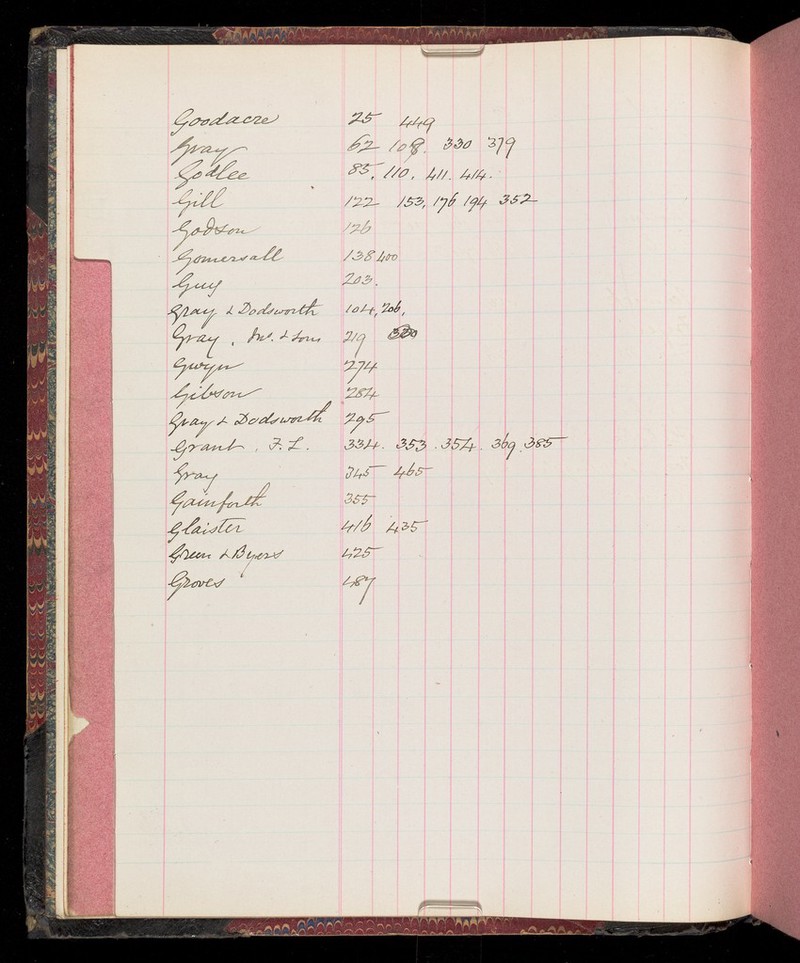 Goodacre 25 449
Gray 62 108. 330 379
Godlee 85, 110, 411. 414.
Gill 122 153, 176 194 352
Godson 126
Gomersall 138 400
Guy 203.
Gray & Dodsworth 104, 206,
Gray, Jno. & Sons 219
Gwyn 274
Gibson 284
Gray & Dodsworth 295
Grant, F. L. 334. 353. 354. 369. 385
Gray 345 465
Gainforth 355
Glaister 416 435
Green & Byers 425
Groves 487